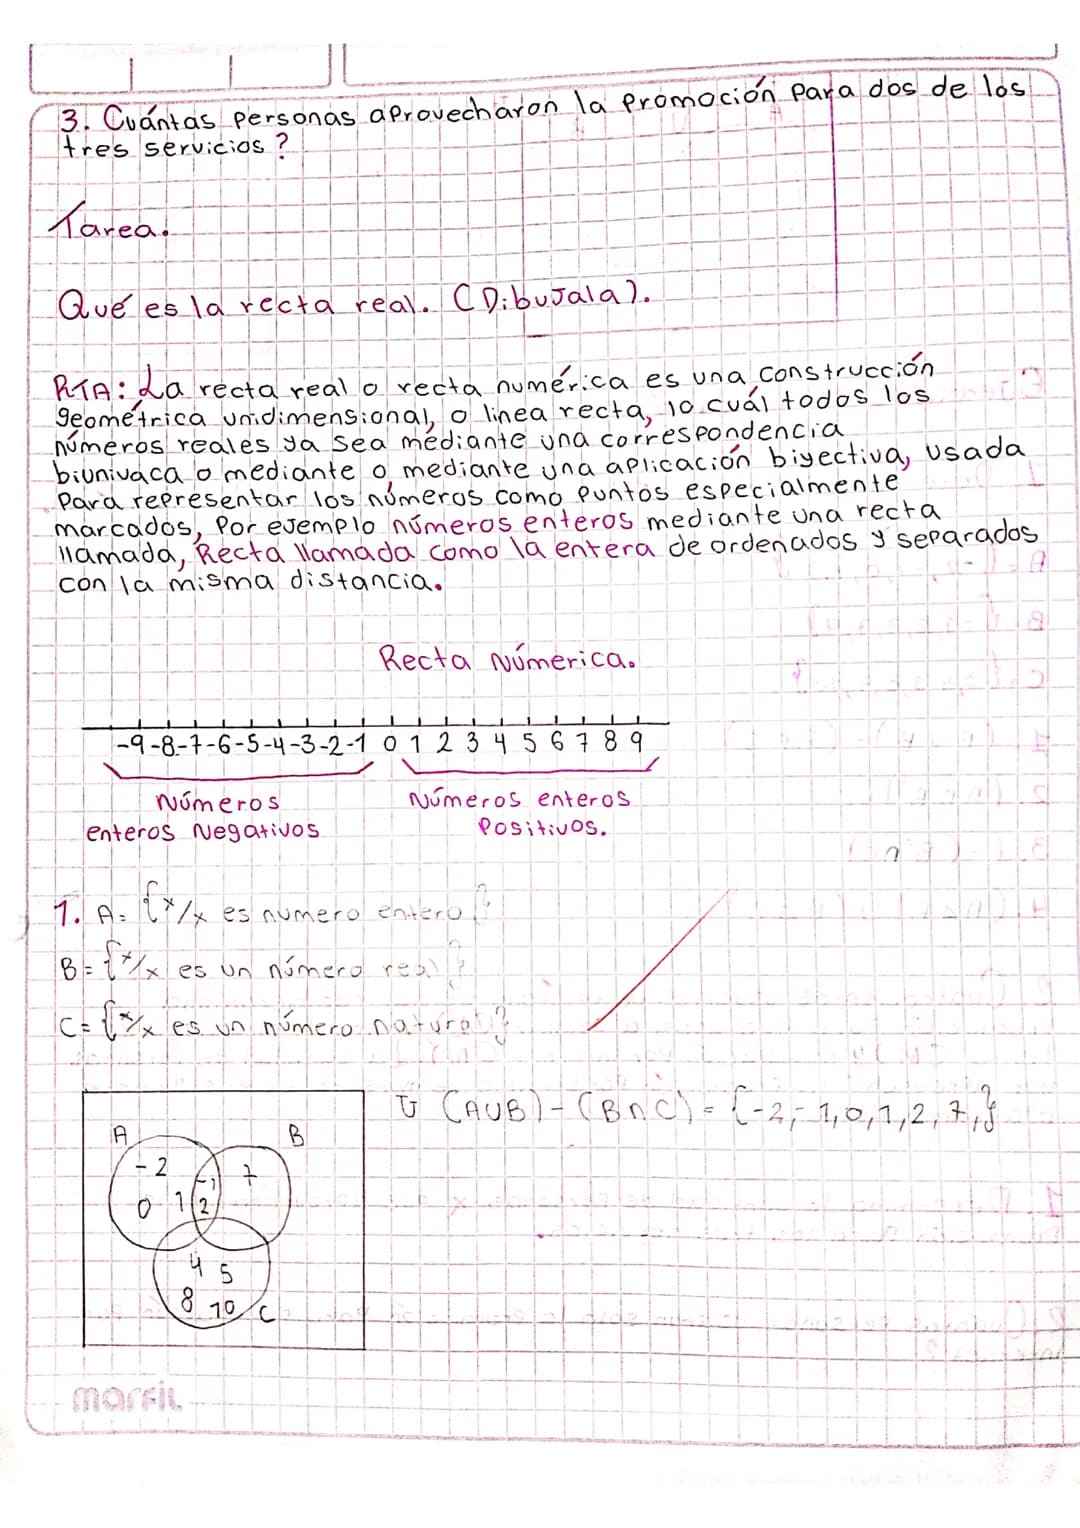 3. Cuántas personas aprovecharon la promoción para dos de los
tres servicios?
Tarea.
Qué es la recta real. (Dibujala).
RTA: La recta real o recta numérica es una construcción
geométrica unidimensional, o linea recta, lo cuál todos los
números reales ya sea mediante una correspondencia
biunivaca o mediante o mediante una aplicación biyectiva, usada
Para representar los números como puntos especialmente
marcados, Por ejemplo números enteros mediante una recta
llamada, Recta llamada como la entera de ordenados y separados
con la misma distancia.
Recta Númerica.
-9 -8 -7 -6 -5 -4 -3 -2 -1 0 1 2 3 4 5 6 7 8 9
Números
enteros Negativos
Números enteros
Positivos.
1. A= {x/x es numero entero}
B= {x/x es un número real}
C= {x/x es un número natural}
(AUB)-(B∩C)= {-2,-1,0,1,2,7,}
A
B
-2
-1
7
0 1 2
4 5
8 10
C
marfil